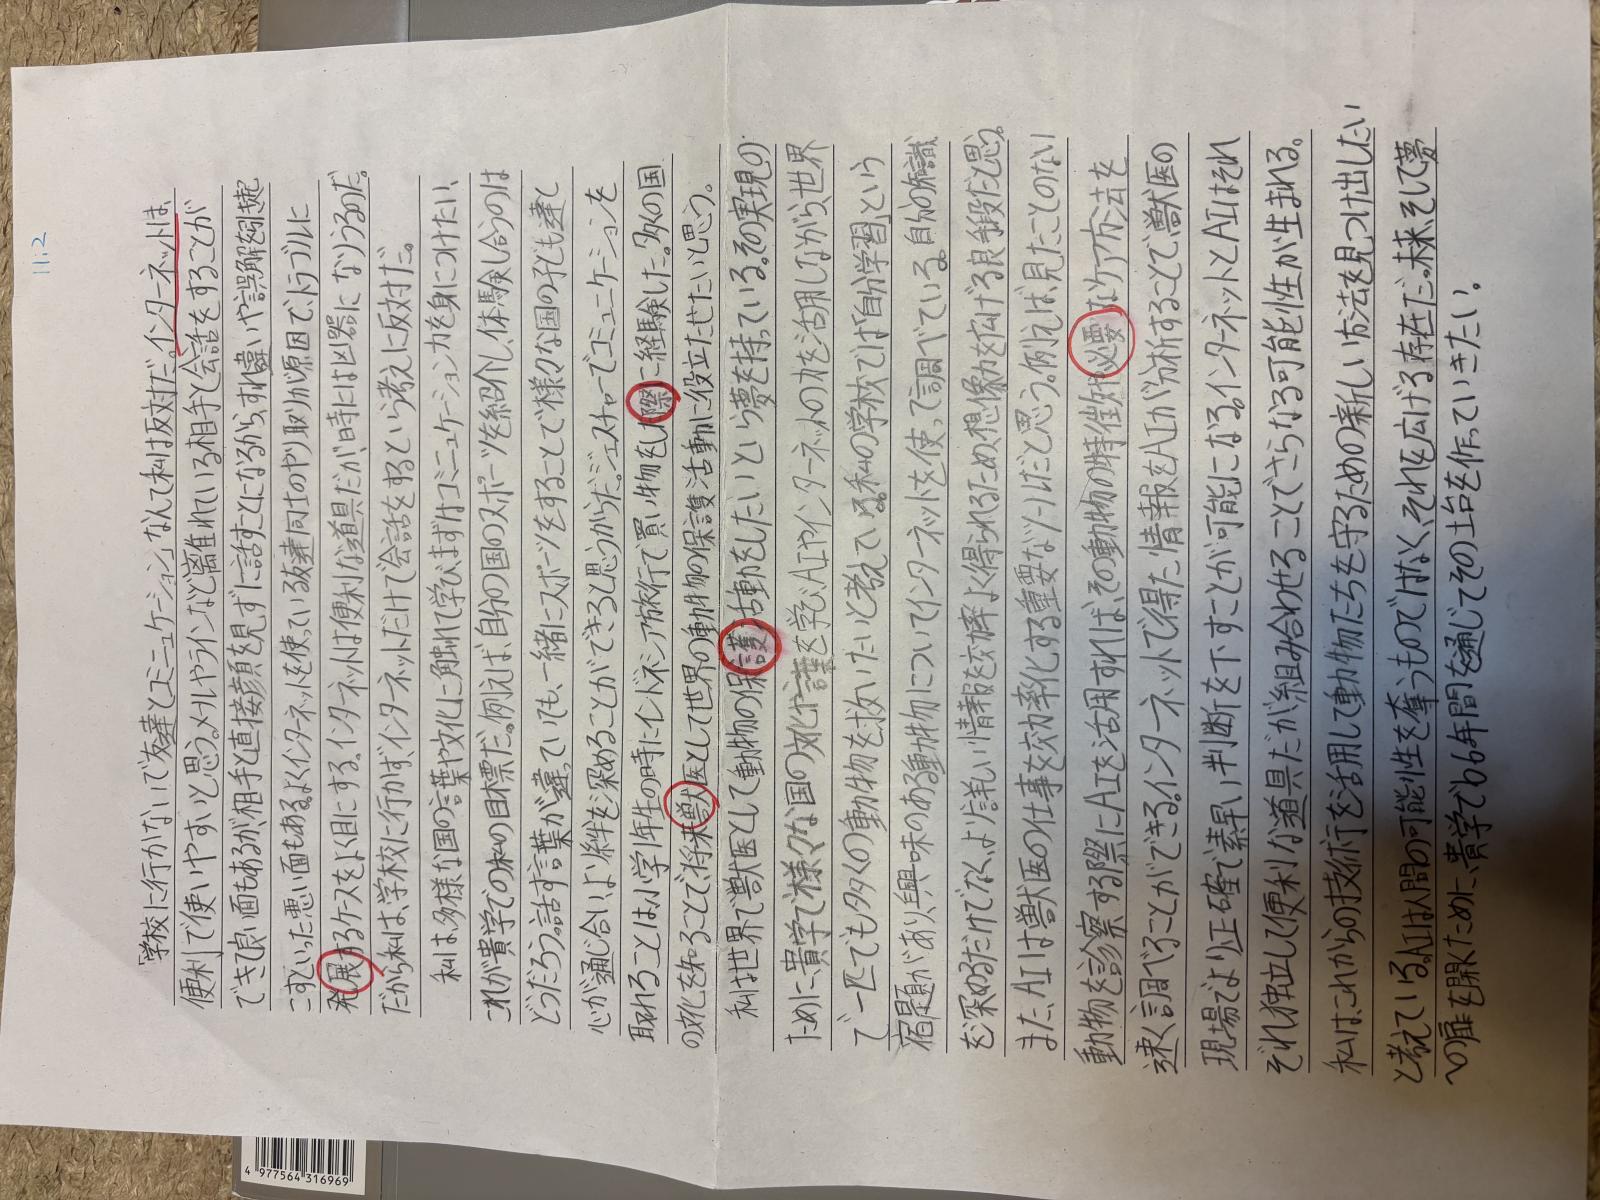 11:2
「学校に行かないで友達とコミュニケーション」なんて私は反対だ。インターネットは、
便利で使いやすいと思う。メールやラインなど離れている相手と会話をすることが
できて良い面もあるが相手と直接顔を見ずに話すことになるから、すれ違いや誤解を引き起
こすといった悪い面もある。よくインターネットを使っている友達同士のやり取りが原因で、トラブルに
発展するケースをよく目にする。インターネットは便利な道具だが時には凶器になりうるのだ。
だから私は、学校に行かず、インターネットだけで会話をするという考えに反対だ。
私は多様な国の言葉や文化に触れて学び、まずはコミュニケーション力を身につけたい、
これが貴学での私の目標だ。例えば、自分の国のスポーツを紹介し、体験し合うのは
どうだろう。話す言葉が違っていても、一緒にスポーツをすることで様々な国の子ども達と
心が通じ合い、より絆を深めることができると思うからだ。ジェスチャーでコミュニケーションを
取れることは、小学1年生の時にインドネシア旅行で買い物をした際に経験した。多くの国
の文化を知ることで将来獣医として世界の動物の保護活動に役立たせたいと思う。
私は世界で獣医として動物の保護活動をしたいという夢を持っている。その実現の
ために、貴学で様々な国の文化や言葉を学び、AIやインターネットの力を活用しながら世界
で一匹でも多くの動物を救いたいと考えている。私の学校では「自分学習」という
宿題があり興味のある動物についてインターネットを使って調べている。自分の知識
を深めるだけでなく、より詳しい情報を効率よく得られるため想像力を広げる良い手段だと思う。
また、AIは獣医の仕事を効率化する重要なツールだと思う。例えば、見たことのない
動物を診察する際にAIを活用すれば、その動物の特徴や必要なケア方法を
速く調べることができる。インターネットで得た情報をAIが分析することで獣医の
現場でより正確で素早い判断を下すことが可能になる。インターネットとAIはそれ
ぞれ独立して便利な道具だが組み合わせることでさらなる可能性が生まれる。
私は、これからの技術を活用して動物たちを守るための新しい方法を見つけ出したい
と考えている。AIは人間の可能性を奪うものではなく、それを広げる存在だ。未来そして夢
への扉を開くために、貴学での6年間を通じてその土台を作っていきたい。
4 977564 316969